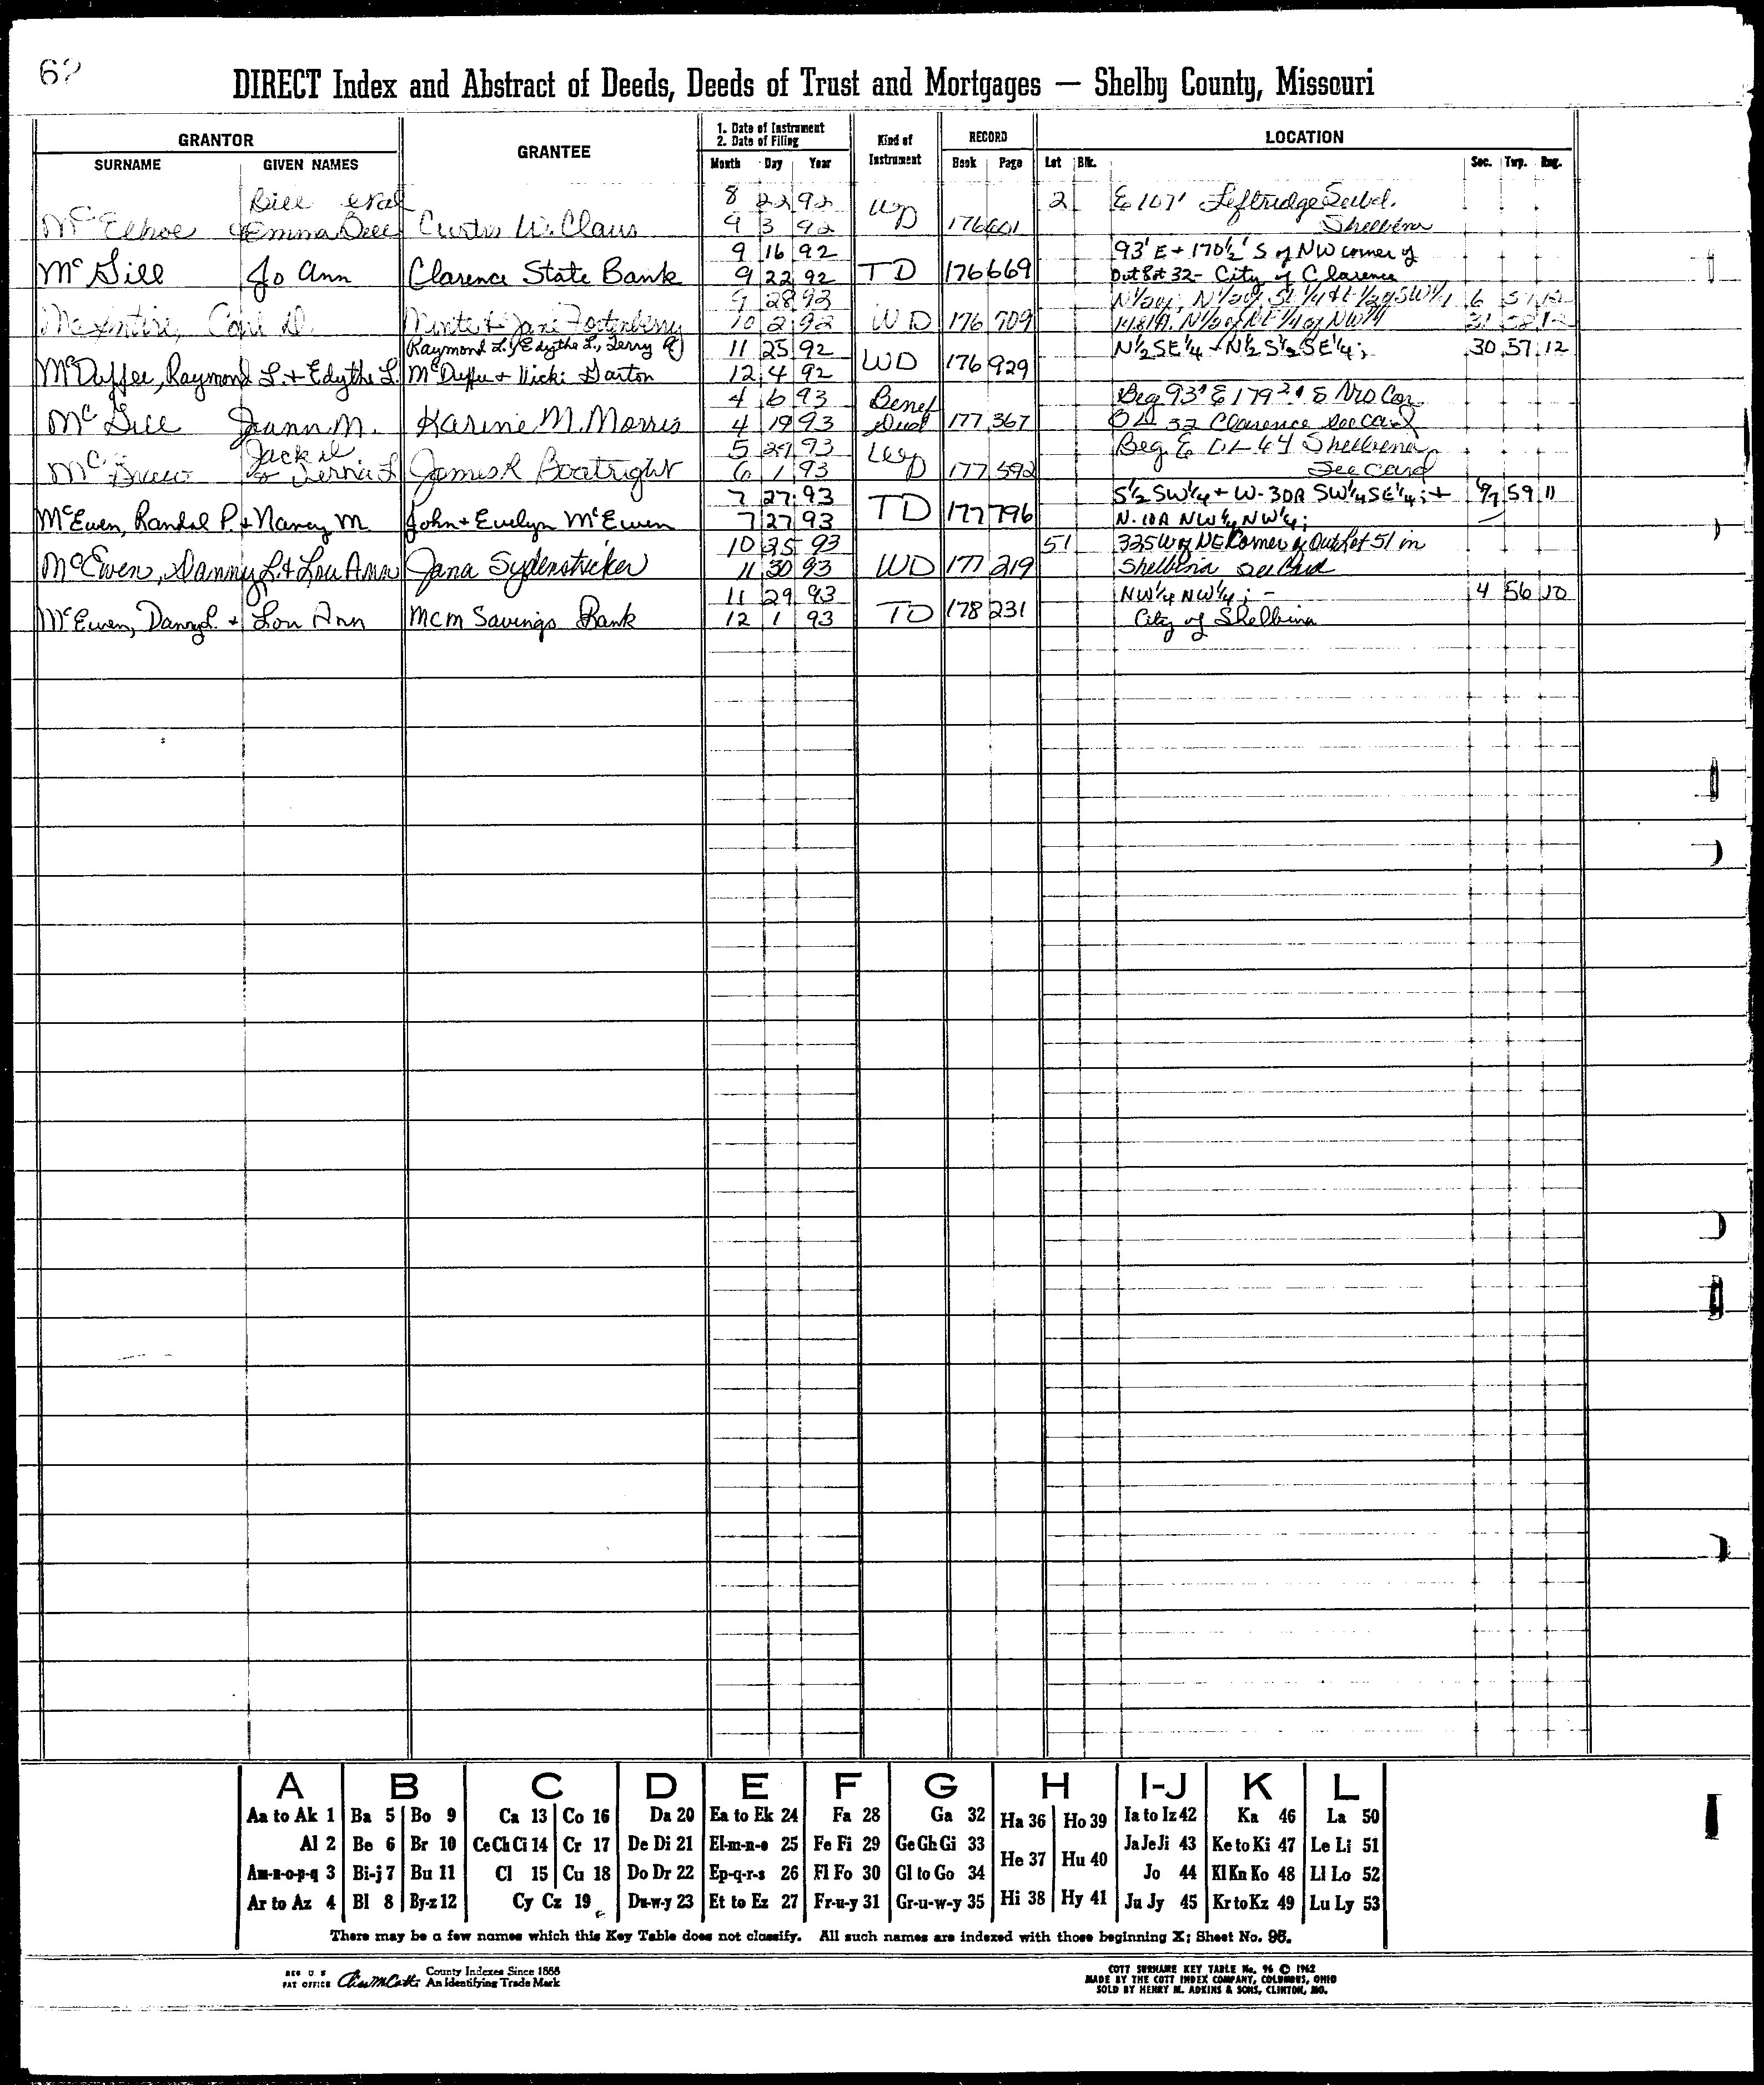 62
DIRECT Index and Abstract of Deeds, Deeds of Trust and Mortgages — Shelby County, Missouri
GRANTOR GRANTEE 1. Date of Instrument 2. Date of Filing Kind of Instrument RECORD LOCATION
SURNAME GIVEN NAMES Month Day Year Book Page Lot Blk. Sec. Twp. Rng.
8 22 92 2 E 107'
& Emma Dell Curtis W. Claus 9 3 92 WD 176 601 Shelbina
9 16 92 93' E + 170½' S of NW corner of
McGill Jo Ann Clarence State Bank 9 22 92 TD 176 669 Out Lot 32- City of Clarence
9 28 92 6 57 12
Carl D. & Jane Fortenberry 10 2 92 WD 176 709 N½ of NE¼ of NW¼
Raymond L., Edythe L., Terry 11 25 92 N½ SE¼ + N½ S½ SE¼; 30 57 12
McDuffee, Raymond L. + Edythe L. McDuffee + Vicki 12 4 92 WD 176 929
4 6 93 Benef Beg 93' E 179 S NW Cor.
McGill Joann M. Karine M. Morris 4 19 93 Deed 177 367 OL 32 Clarence See Card
Jack 5 29 93 Beg E OL 64 Shelbina
James R Boatright 6 1 93 WD 177 592 See Card
7 27 93 S½ SW¼ + W-30A SW¼ SE¼; + 6/7 59 11
McEwen, Randal P. + Nancy M John + Evelyn McEwen 7 27 93 TD 177 796 N. 10A NW¼ NW¼;
10 25 93 51 325 W of NE Corner of Outlot 51 in
McEwen, Danny L. + Lou Ann Jana Sydenstricker 11 30 93 WD 177 219 Shelbina See Card
11 29 93 NW¼ NW¼; - 4 56 10
McEwen, Danny L. + Lou Ann MCM Savings Bank 12 1 93 TD 178 231 City of Shelbina
A B C D E F G H I-J K L
Aa to Ak 1 Ba 5 Bo 9 Ca 13 Co 16 Da 20 Ea to Ek 24 Fa 28 Ga 32 Ha 36 Ho 39 Ia to Iz 42 Ka 46 La 50
Al 2 Be 6 Br 10 Ce Ch Ci 14 Cr 17 De Di 21 El-m-n-o 25 Fe Fi 29 Ge Gh Gi 33 He 37 Hu 40 Ja Je Ji 43 Ke to Ki 47 Le Li 51
Am-n-o-p-q 3 Bi-j 7 Bu 11 Cl 15 Cu 18 Do Dr 22 Ep-q-r-s 26 Fl Fo 30 Gl to Go 34 Jo 44 Kl Kn Ko 48 Ll Lo 52
Ar to Az 4 Bl 8 By-z 12 Cy Cz 19 Du-w-y 23 Et to Ez 27 Fr-u-y 31 Gr-u-w-y 35 Hi 38 Hy 41 Ju Jy 45 Kr to Kz 49 Lu Ly 53
There may be a few names which this Key Table does not classify. All such names are indexed with those beginning X; Sheet No. 95.
REG U. S PAT OFFICE County Indexes Since 1888 An Identifying Trade Mark
COTT SURNAME KEY TABLE No. 96 © 1962
MADE BY THE COTT INDEX COMPANY, COLUMBUS, OHIO
SOLD BY HENRY M. ADKINS & SONS, CLINTON, MO.